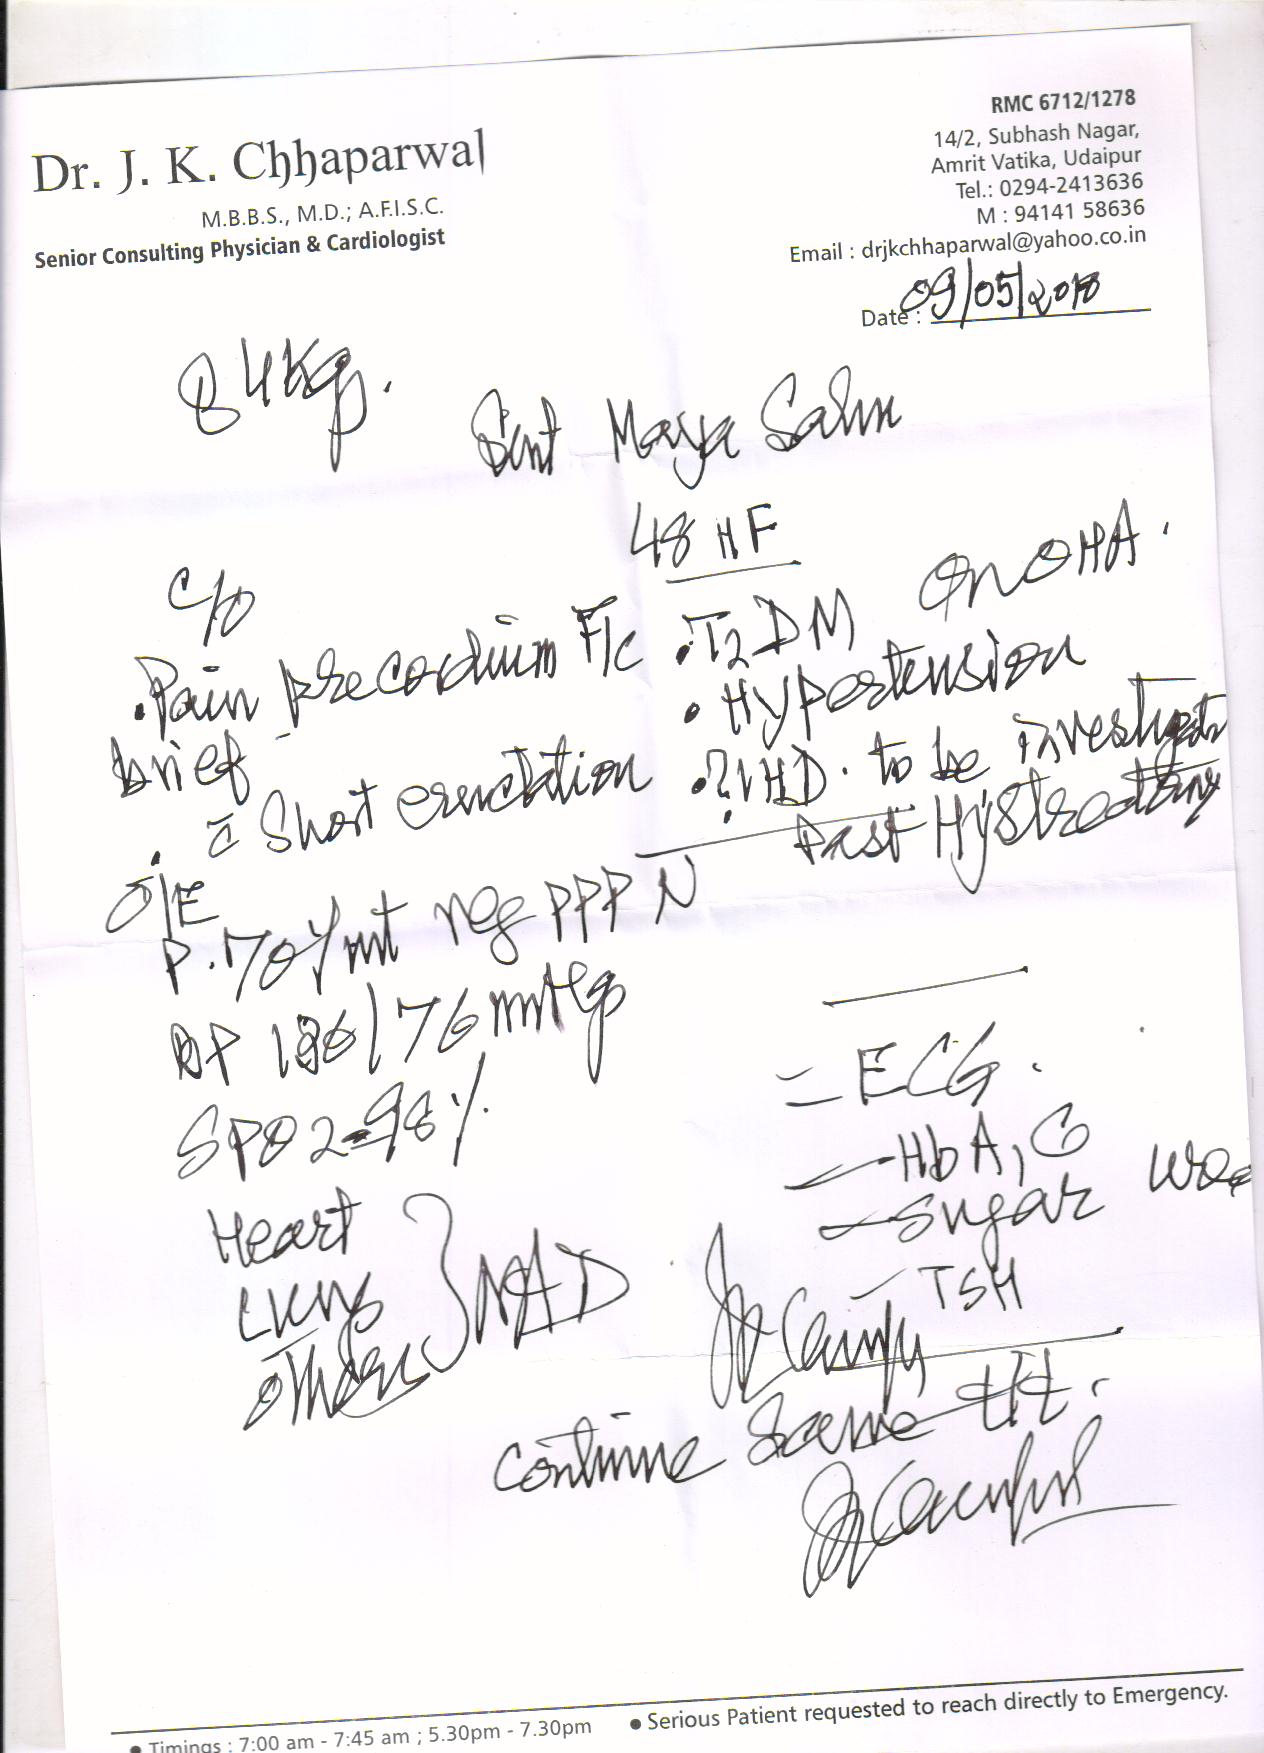 RMC 6712/1278
Dr. J. K. Chhaparwal
14/2, Subhash Nagar,
Amrit Vatika, Udaipur
M.B.B.S., M.D.; A.F.I.S.C.
Tel.: 0294-2413636
Senior Consulting Physician & Cardiologist
M : 94141 58636
Email : drjkchhaparwal@yahoo.co.in
Date : 09/05/2018
84Kg.
Smt Maya
48 HF
C/o
• Pain precordium F/c
brief
c̄ Short eructation
• T2DM on OHA.
• Hypertension
• ? IHD. to be
Past
O/E
P. 70/mt reg PPP N
BP 136/76 mmHg
SPO2-98%
Heart
Lungs
others } NAD
= ECG.
- HbA1C
- Sugar
- TSH
Continue Same ttt.
• Timings : 7:00 am - 7:45 am ; 5.30pm - 7.30pm • Serious Patient requested to reach directly to Emergency.